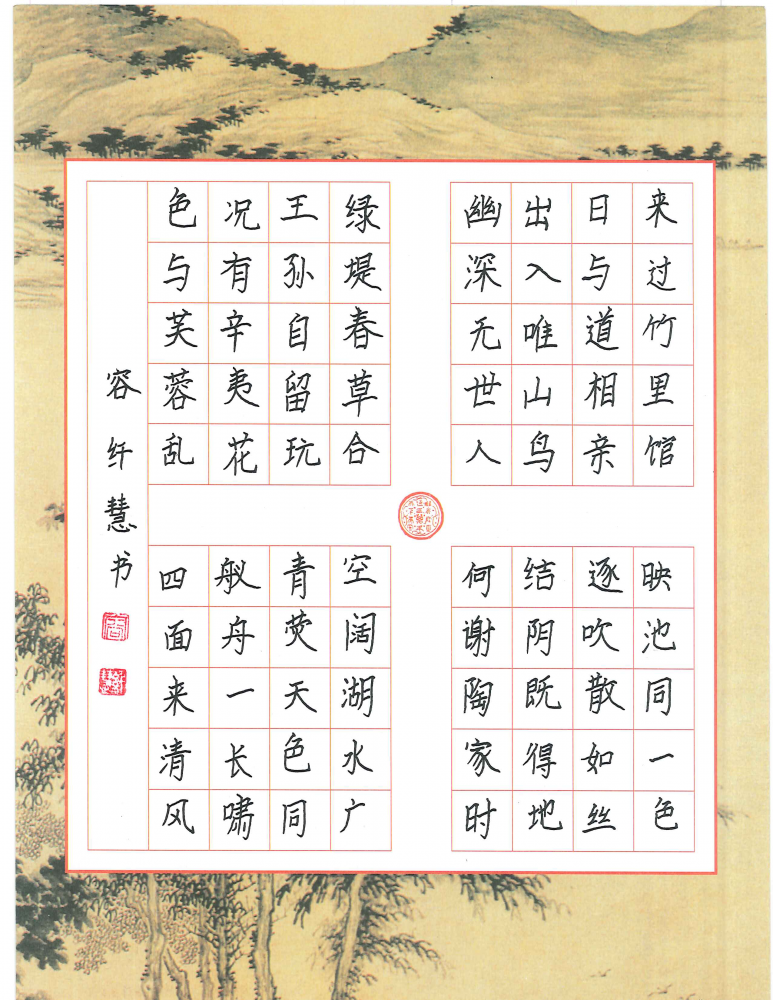 来过竹里馆
日与道相亲
出入唯山鸟
幽深无世人
映池同一色
逐吹散如丝
结阴既得地
何谢陶家时
绿堤春草合
王孙自留玩
况有辛夷花
色与芙蓉乱
空阔湖水广
青荧天色同
舣舟一长啸
四面来清风
容纤慧书